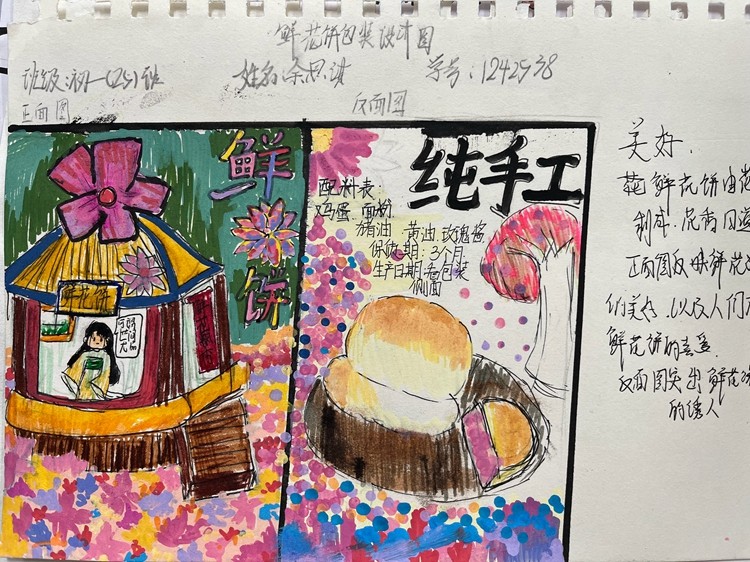 鲜花饼包装设计图
班级:初一(25)班 姓名:余思淇 学号:1242538
正面图 反面图
鲜
花
饼
鲜花饼
纯手工
配料表:
鸡蛋 面粉
猪油 黄油 玫瑰酱
保质期:3个月
生产日期:看包装
侧面
美好.
鲜花饼由
制成.花香
正面图反映鲜花
的美好.以及人们
鲜花饼的喜爱.
反面图突出鲜花
的诱人